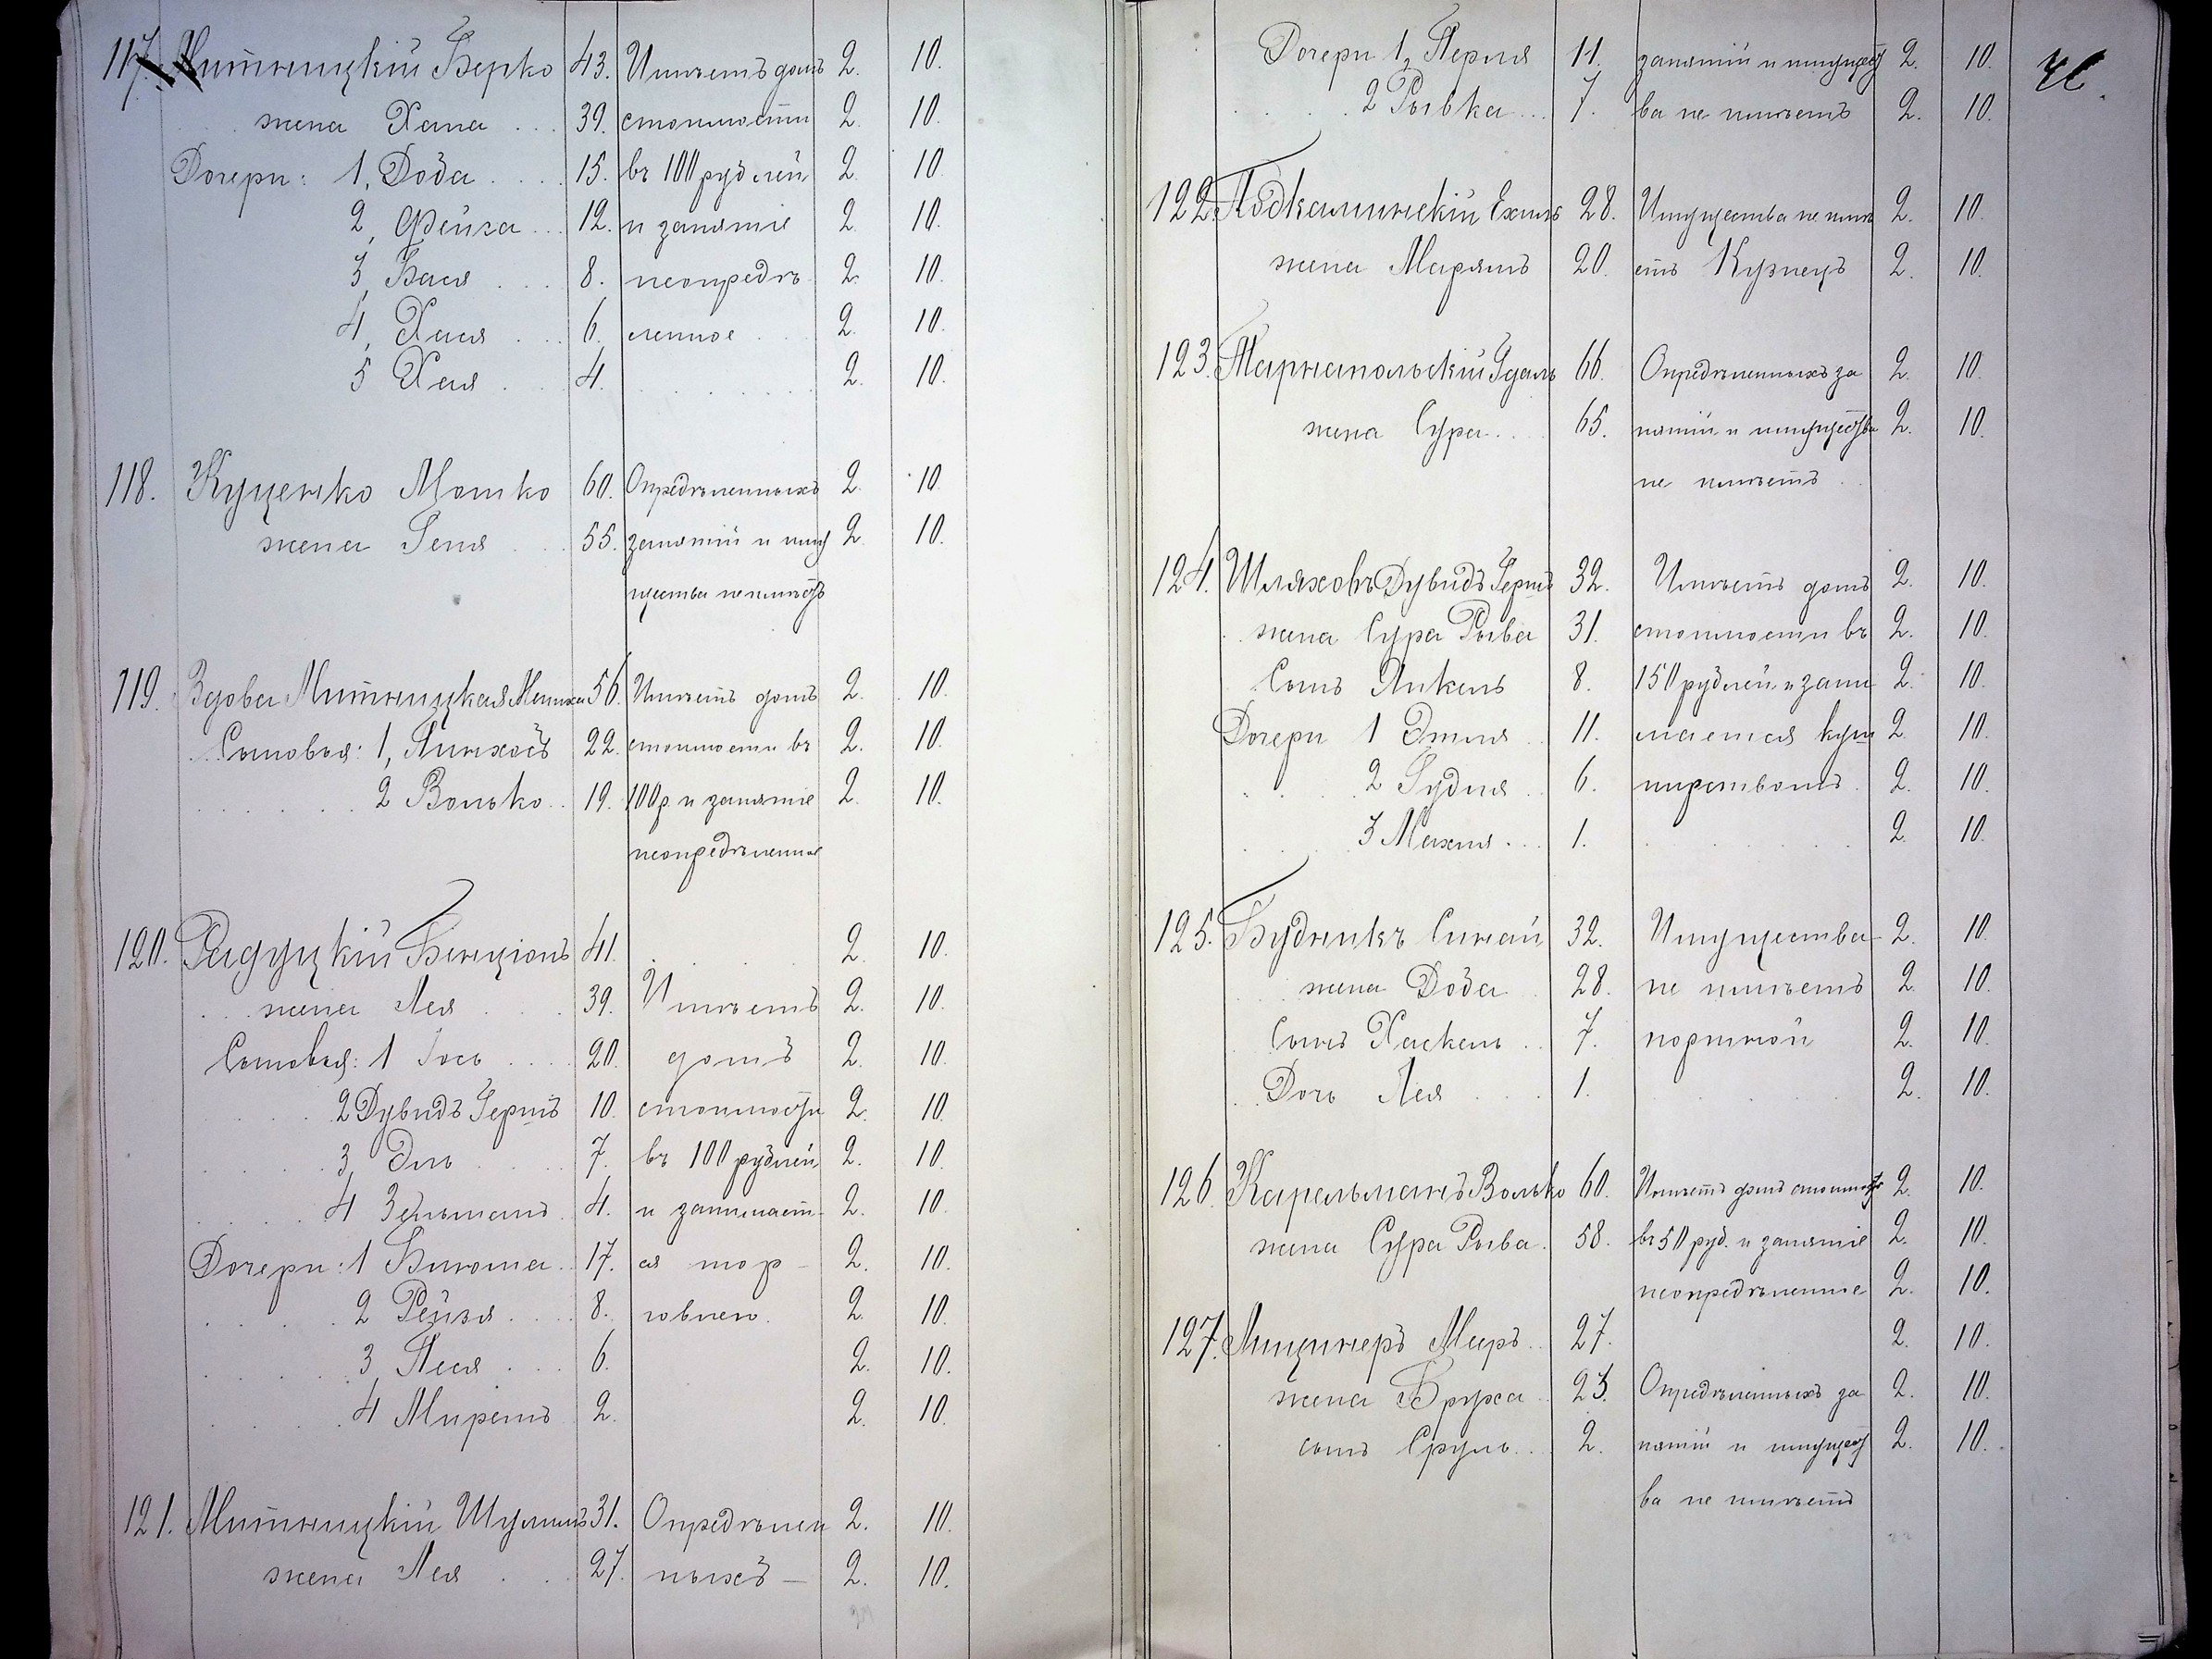 117. Митницкій Берко 43. Имѣетъ домъ 2. 10.
жена Хана 39. стоимости 2. 10.
Дочери: 1, Доба 15. въ 100 рублей 2. 10.
2, Фейга 12. и занятіе 2. 10.
3, Бася 8. неопредѣ 2. 10.
4, Хася 6. ленное 2. 10.
5 Хая 4. 2. 10.
118. Куценко Мошко 60. Опредѣленныхъ 2. 10.
жена Геня 55. занятій и иму 2. 10.
щества не имѣетъ
119. Вдова Митницкая 56. Имѣетъ домъ 2. 10.
Сыновья: 1, Пинхасъ 22. стоимости въ 2. 10.
2 Волько 19. 100 р. и занятіе 2. 10.
неопредѣленное
120. Радуцкій Бенціонъ 41. 2. 10.
жена Лея 39. Имѣетъ 2. 10.
Сыновья: 1 Іось 20. домъ 2. 10.
2 Дувидъ Гершъ 10. стоимости 2. 10.
3, Эль 7. въ 100 рублей 2. 10.
4 Зельманъ 4. и занимает- 2. 10.
Дочери: 1 Бинома 17. ся тор- 2. 10.
2 Рейзя 8. говлею. 2. 10.
3 Песя 6. 2. 10.
4 Миремъ 2. 2. 10.
121. Митницкій Шулимъ 31. Опредѣлен 2. 10.
жена Лея 27. ныхъ — 2. 10.
46.
Дочери 1, Перля 11. занятій и имущест 2. 10.
2 Рывка 7. ва не имѣетъ 2. 10.
122. Подкаминскій Ехилъ 28. Имущества не имѣ 2. 10.
жена Марямъ 20. етъ Кузнецъ 2. 10.
123. Тарнапольскій Гдаль 66. Опредѣленныхъ за 2. 10.
жена Сура 65. нятій и имущества 2. 10.
не имѣетъ
124. Шляховъ Дувидъ Гершъ 32. Имѣетъ домъ 2. 10.
жена Сура Рыва 31. стоимости въ 2. 10.
Сынъ Янкель 8. 150 рублей и зани- 2. 10.
Дочери 1 Этля 11. мается куш 2. 10.
2 Гудля 6. нирствомъ. 2. 10.
3 Махля 1. 2. 10.
125. Будникъ Синай 32. Имущества 2. 10.
жена Доба 28. не имѣетъ 2. 10.
Сынъ Хаскель 7. портной 2. 10.
Дочь Лея 1. 2. 10.
126. Капельманъ Волько 60. Имѣетъ домъ стоимость 2. 10.
жена Сура Рыва 58. въ 50 руб. и занятіе 2. 10.
неопредѣленное 2. 10.
127. Лицинеръ Меръ 27. 2. 10.
жена Бруха 23. Опредѣленныхъ за 2. 10.
сынъ Сруль 2. нятій и имущест 2. 10.
ва не имѣетъ